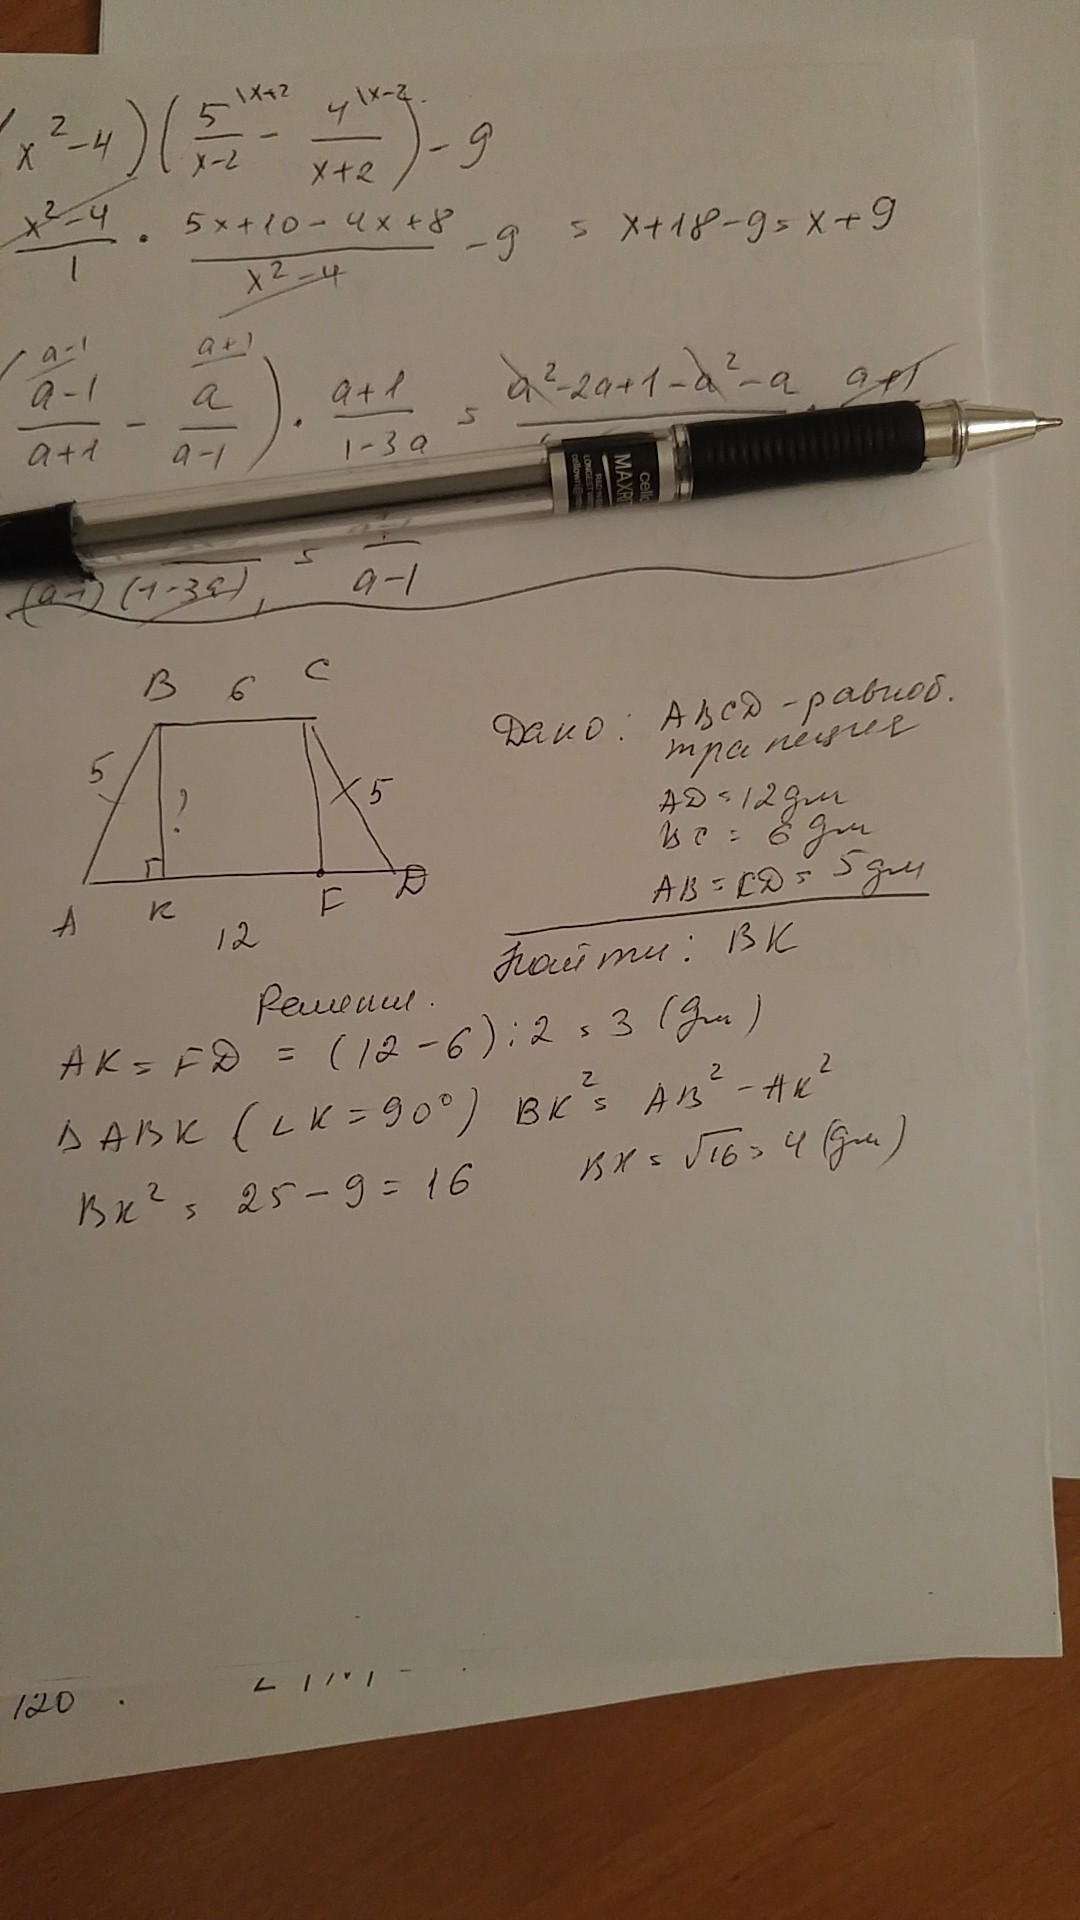 (x²-4)(5\x+2/x-2 - 4\x-2/x+2) - 9
x²-4/1 · 5x+10-4x+8/x²-4 - 9 = x+18-9=x+9
(a-1/a-1/a+1 - a+1/a/a-1) · a+1/1-3a = a²-2a+1-a²-a · a+1
cello
MAXRI
(a-1)(1-3a) = a-1
B 6 C
5
? 5
A K F D
12
Дано: ABCD - равноб.
трапеция
AD = 12 дм
BC = 6 дм
AB = CD = 5 дм
Найти: BK
Решение.
AK = FD = (12-6):2 = 3 (дм)
Δ ABK (∠K=90°) BK² = AB² - AK²
BK² = 25-9=16 BK = √16 = 4 (дм)
120